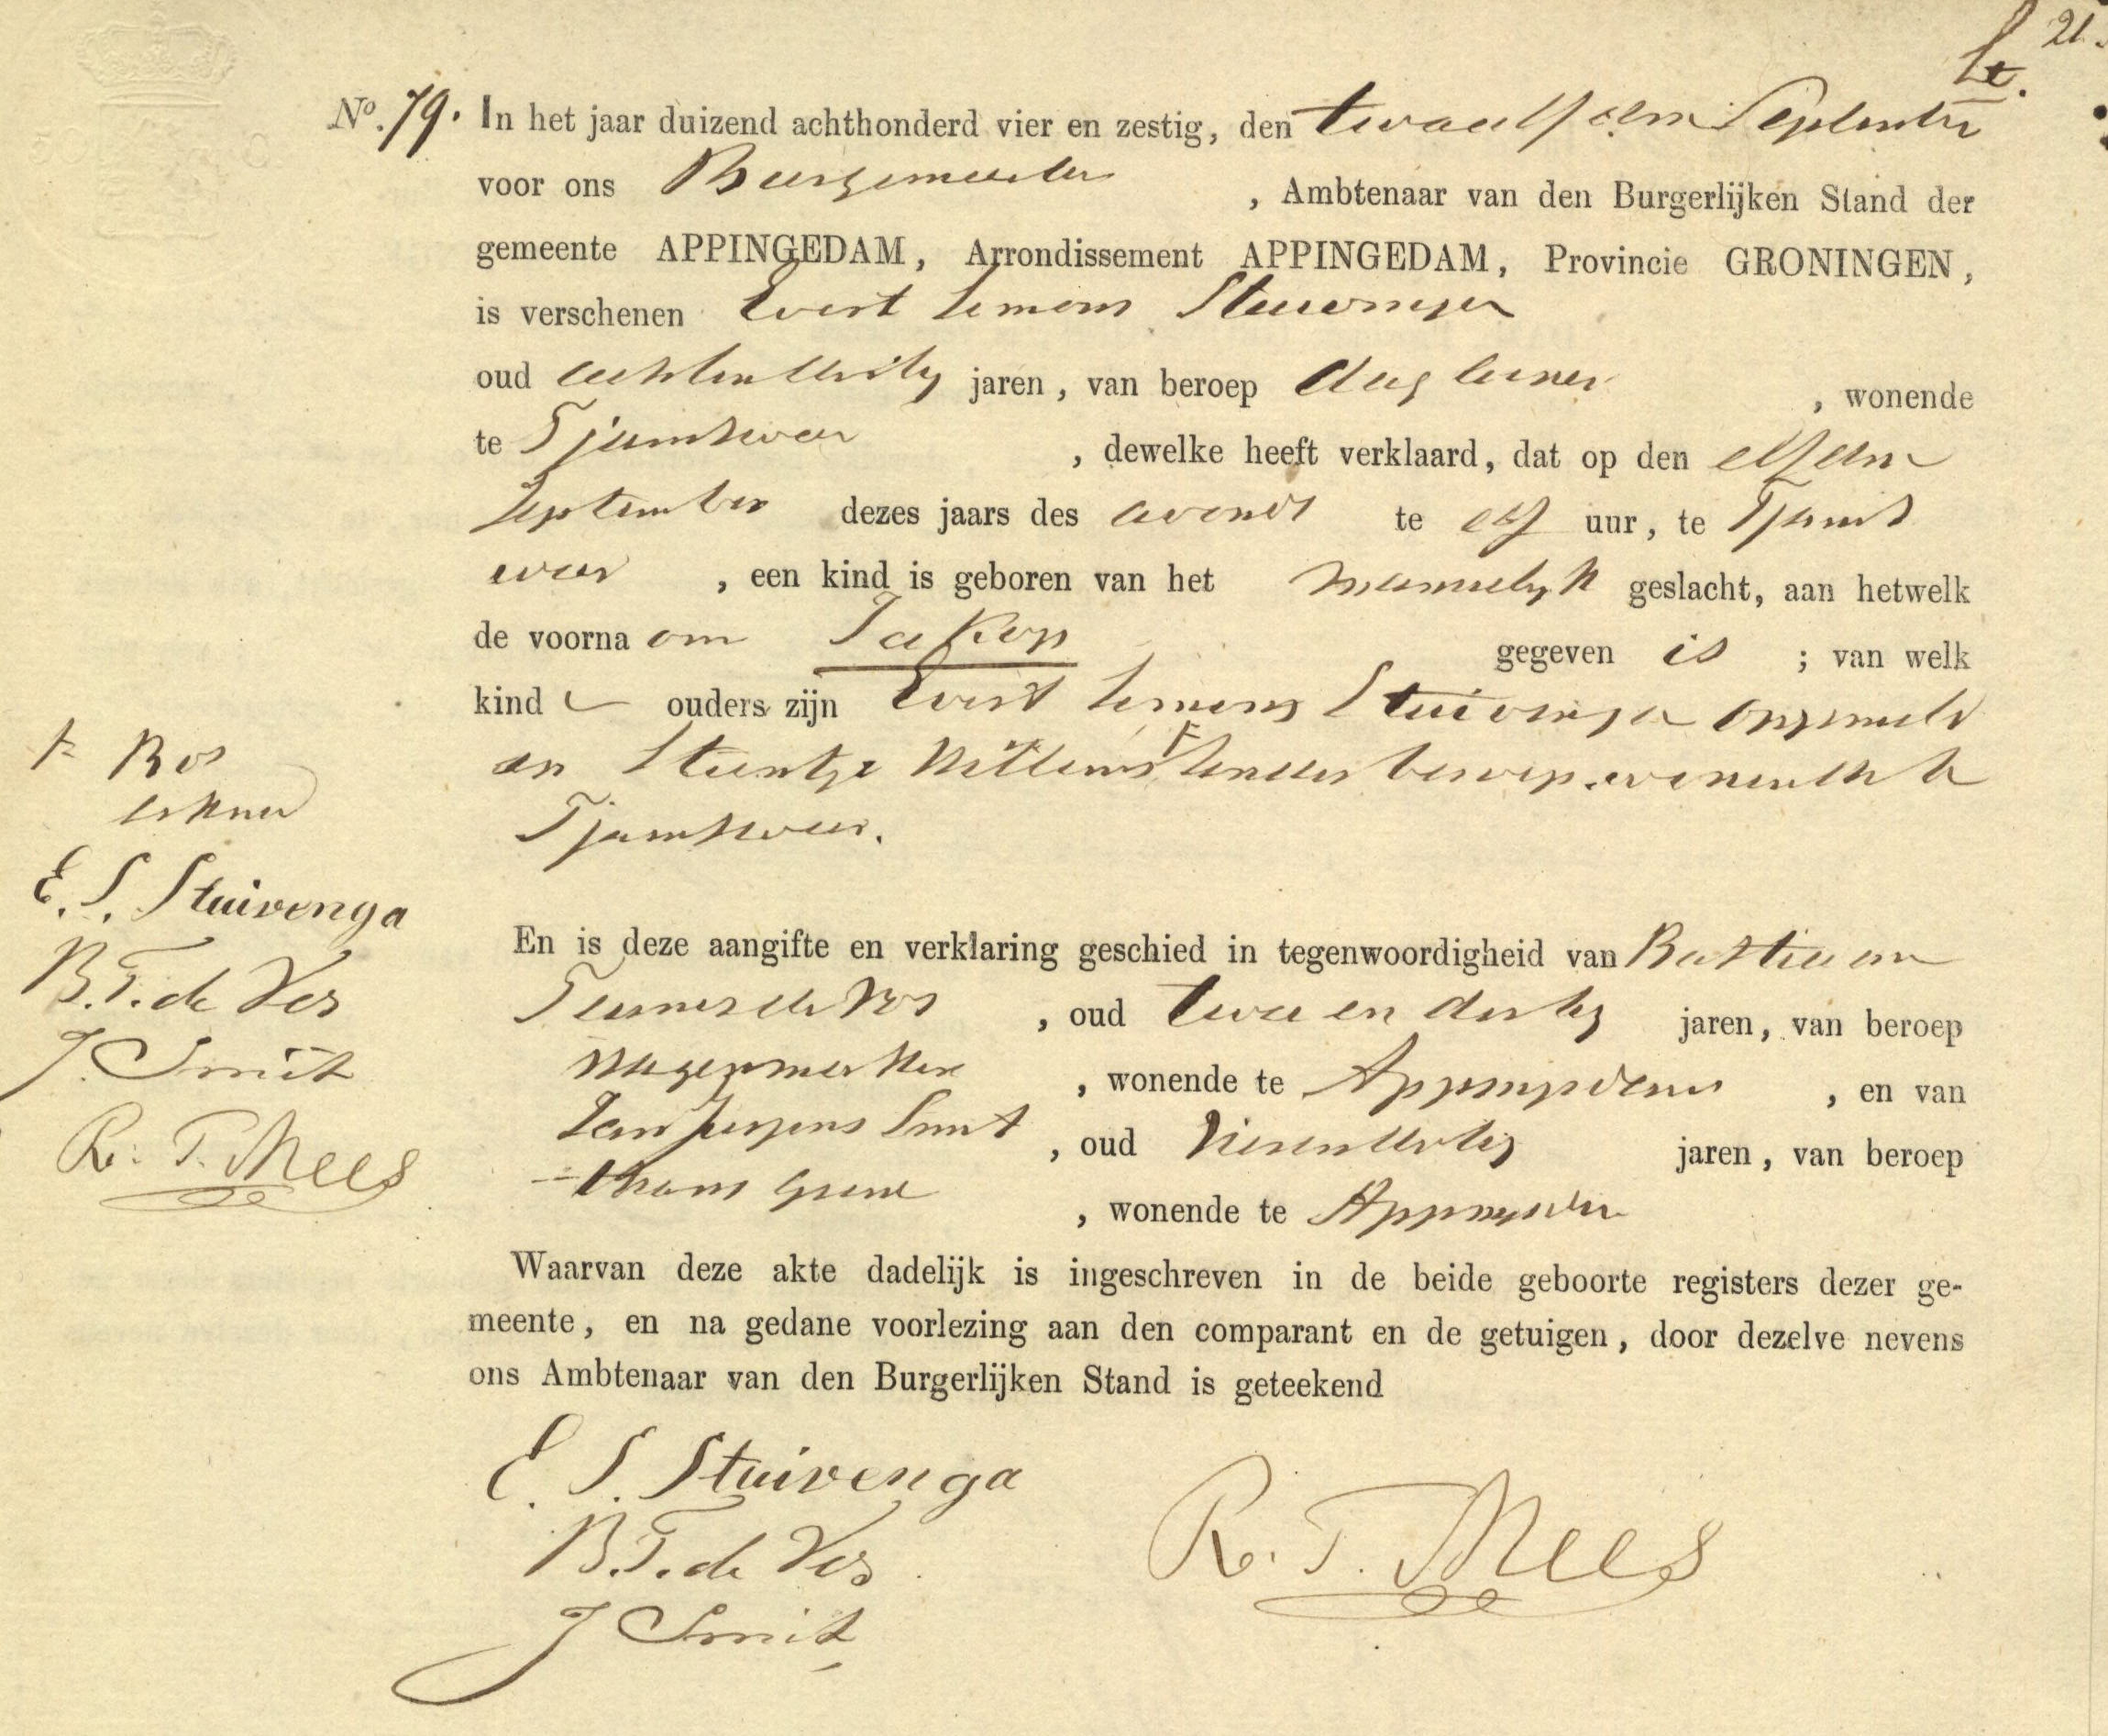 21.
No. 79. In het jaar duizend achthonderd vier en zestig, den twaalfden September
voor ons Burgemeester, Ambtenaar van den Burgerlijken Stand der
gemeente APPINGEDAM, Arrondissement APPINGEDAM, Provincie GRONINGEN,
is verschenen Evert Simons Stuivenga
oud achtendertig jaren, van beroep dagloner, wonende
te Tjamsweer, dewelke heeft verklaard, dat op den elfden
September dezes jaars des avonds te elf uur, te Tjams
weer, een kind is geboren van het mannelyk geslacht, aan hetwelk
de voornaam Jakop gegeven is; van welk
kind ouders zijn Evert Simons Stuivenga opgemeld
en Stientje Willems zonder beroep wonende te
Tjamsweer.
+ Bos
erkend
E. S. Stuivenga
B. T. de Vos
J. Smit
R. T. Mees
En is deze aangifte en verklaring geschied in tegenwoordigheid van Bastiaan
Teunis de Vos, oud twee en dertig jaren, van beroep
Wagenmaker, wonende te Appingedam, en van
Jan Jurjens Smit, oud Vierendertig jaren, van beroep
, wonende te Appingedam
Waarvan deze akte dadelijk is ingeschreven in de beide geboorte registers dezer ge-
meente, en na gedane voorlezing aan den comparant en de getuigen, door dezelve nevens
ons Ambtenaar van den Burgerlijken Stand is geteekend
E. S. Stuivenga
B. T. de Vos
J Smit
R. T. Mees